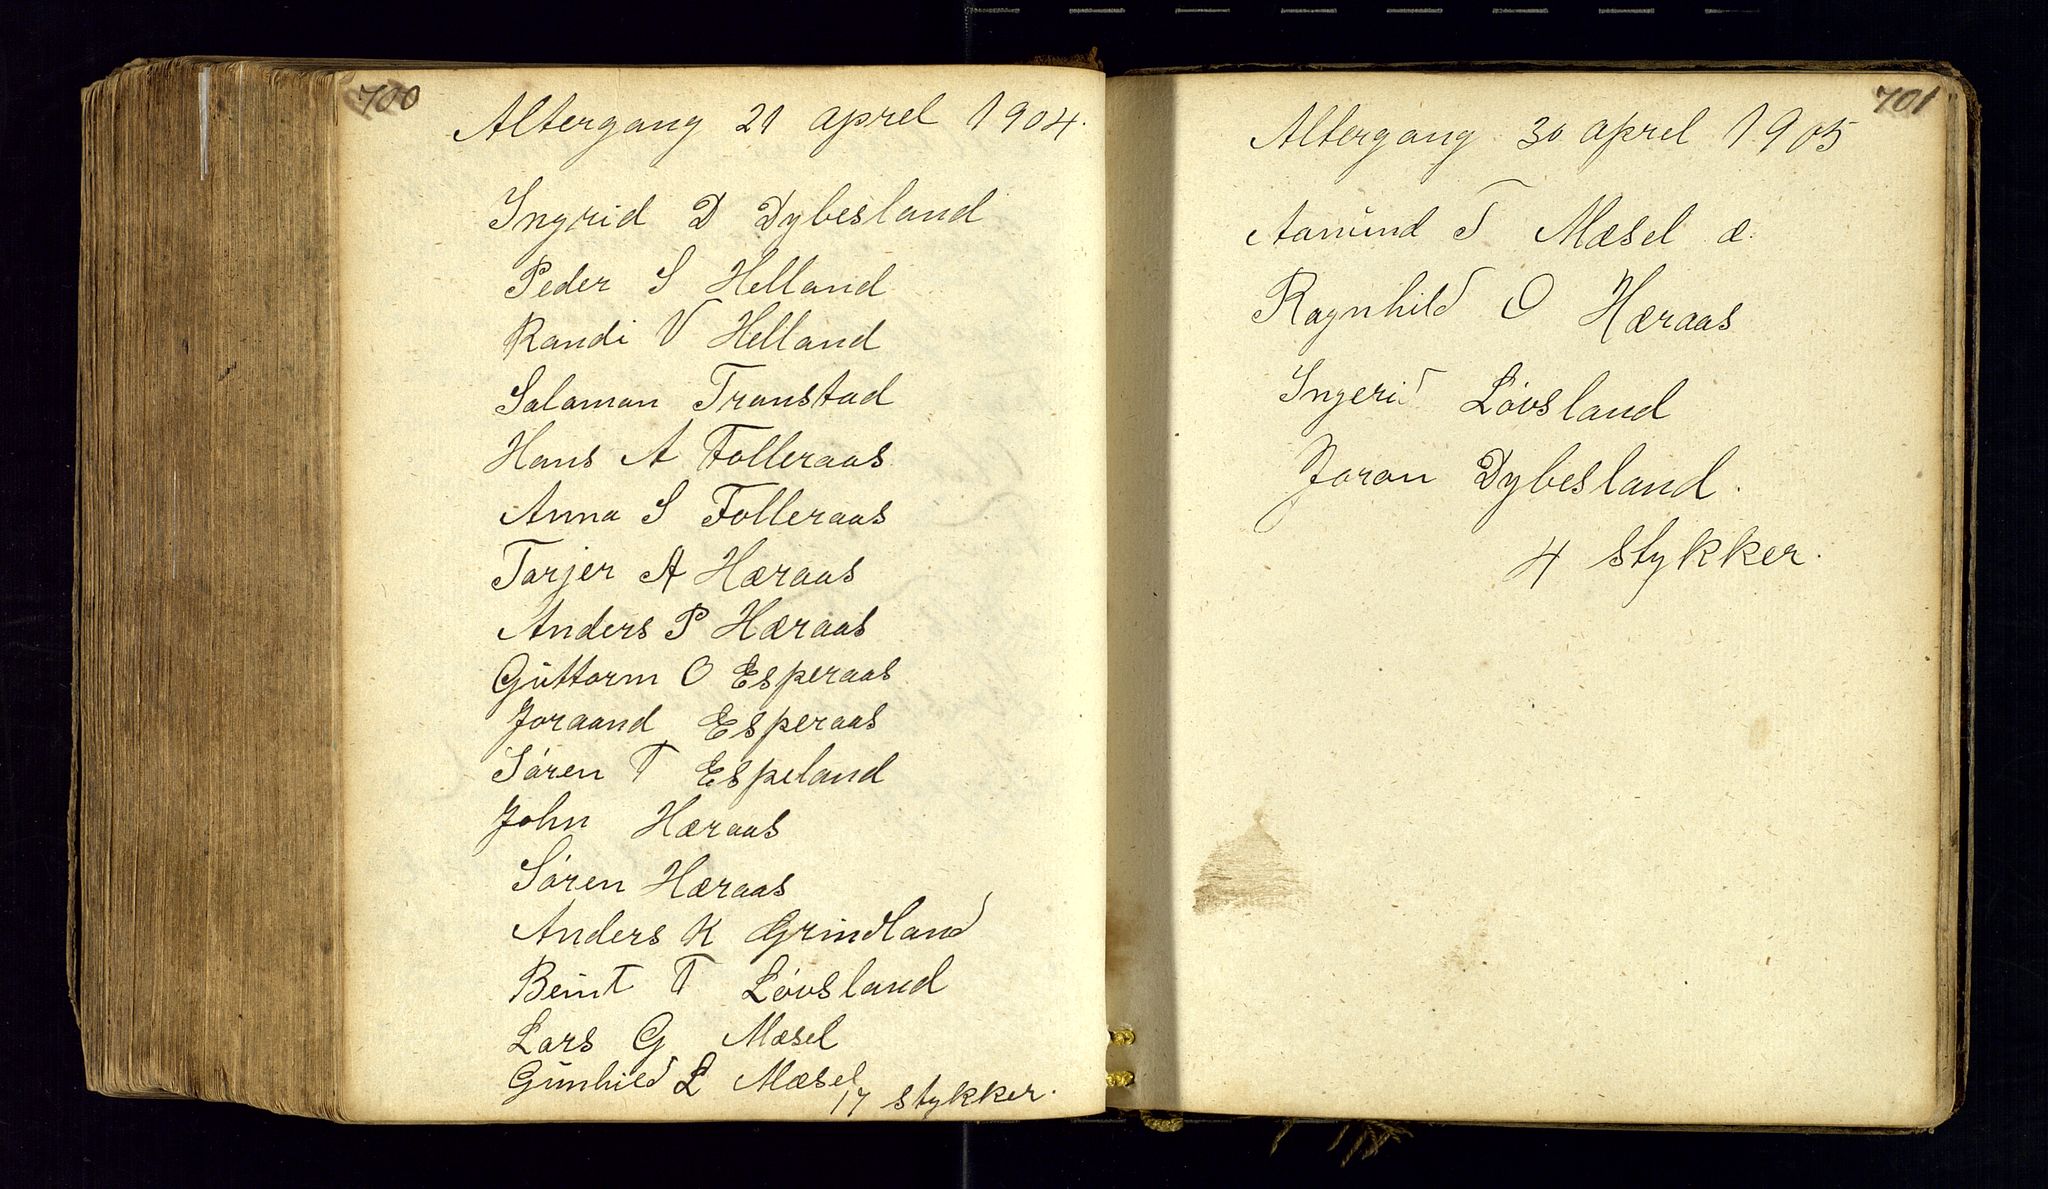 700
Altergang 21 aprel 1904.
Ingrid D Dybesland
Peder S Helland
Randi V Helland
Salamon Tronstad
Hans A Folleraas
Anna S Folleraas
Tarjer A Hæraas
Anders P Hæraas
Gŭttorm O Esperaas
Joraand Esperaas
Søren T Espeland
John Hæraas
Søren Hæraas
Anders K Grindland
Beint T Løvsland
Lars G Mæsel
Gŭnhild L Mæsel
17 stykker.
701
Altergang 30 aprel 1905
Aamŭnd T Mæsel æ.
Ragnhild O Hæraas
Ingerid Løvsland
Joron Dybesland.
4 stykker.